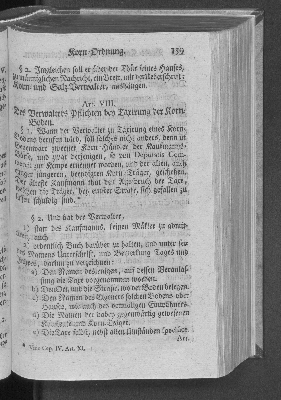 Korn-Ordnung. 159
§ 2. Imgleichen soll er über der Thür seines Hauses,
zu männiglicher Nachricht, ein Brett, mit der Ueberschrift:
Korn- und Saltz-Verwalter, aushängen.
Art. VIII.
Des Verwalters Pflichten bey Taxirung der Korn-
Boden.
§ 1. Wann der Verwalter zu Taxirung eines Korn-
Bodens berufen wird, soll solches nicht anders, denn in
Gegenwart zweener Korn-Händler der Kaufmanns-
und zwar derjenigen, so von
zur ernennet worden, und der
jüngsten, beeydigten Korn-Träger, geschehen.
Der älteste Kaufmann thut den Ausspruch des Taxe,
bey Strafe, sich gefallen zu
lassen schuldig sind. *
§ 2. Und hat der Verwalter,
1) statt des Kaufmanns, seinen Mäkler zu
auch
2) ordentlich Buch darüber zu halten, und unter
des Namens Unterschrift, und Bemerkung Tages und
darinn zu verzeichnen:
a) Den Namen desjenigen, auf dessen Veranlas-
sung die Taxe vorgenommen worden.
b) Den Ort, und die Strasse, wo der Boden belegen.
c) Den Namen des Eigeners solchen Bodens oder
Hauses, wie auch des dermaligen Einwohners.
d) Die Namen der dabey gegenwärtig gewesenen
Kaufleute und Korn-Träger.
e) Die Taxe selbst, nebst allen Umständen
* Vide Cap. IV. Art. XI.